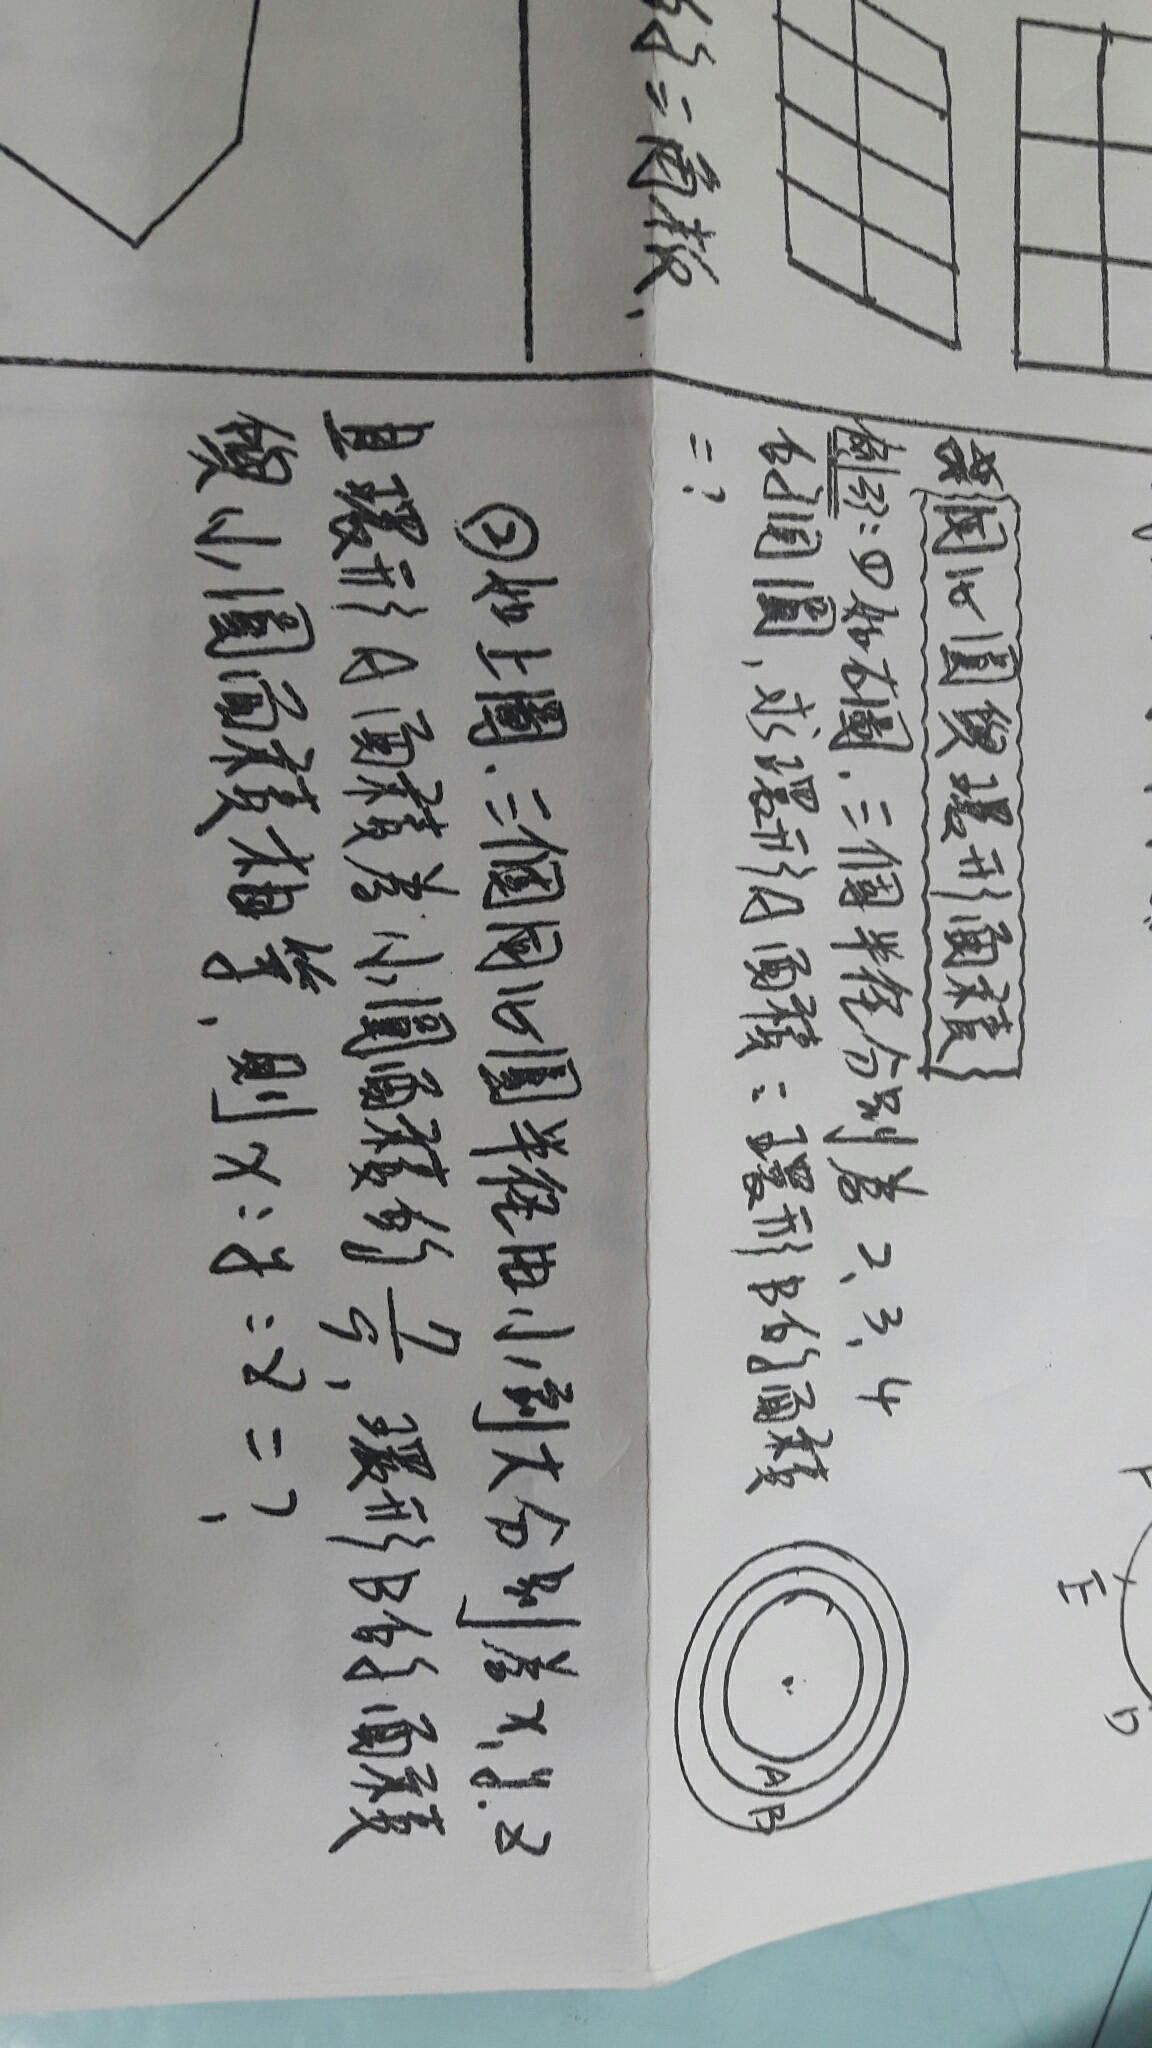 的三角板,
同心圓與環形面積
例3:①如右圖,三個半徑分別為2、3、4
的同圓,求環形A面積:環形B的面積
=?
A
B
②如上圖,三個同心圓半徑由小到大分別為x,y,z
且環形A面積為小圓面積的7/5,環形B的面積
與小圓面積相等,則x:y:z=?,
E
D